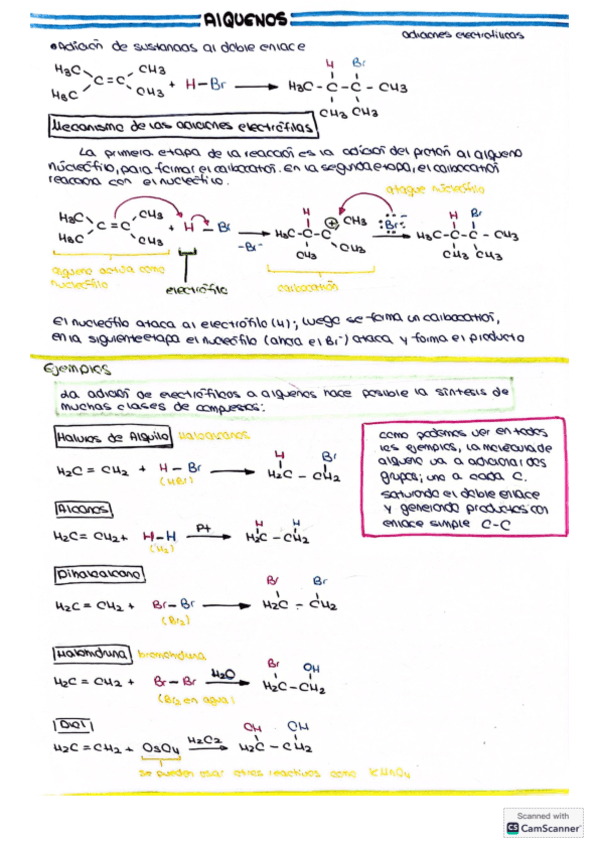 Alquenos
adiciones electrofilicas
Adición de sustancias al doble enlace
H3C CH3 H Br
C=C + H-Br → H3C-C-C-CH3
H3C CH3 CH3 CH3
Mecanismo de las adiciones electrófilas
La primera etapa de la reacción es la adición del protón al alqueno
núcleófilo, para formar el carbocatión. En la segunda etapa, el carbocatión
reacciona con el nucleófilo.
ataque nucleófilo
H3C CH3 H CH3 H Br
C=C + H-Br → H3C-C-C ⊕ :Br:- → H3C-C-C-CH3
H3C CH3 -Br- CH3 CH3 CH3 CH3
alqueno actua como
nucleófilo
electrófilo
carbocatión
El nucleófilo ataca al electrófilo (H); luego se forma un carbocatión,
en la siguiente etapa el nucleófilo (ahora el Br-) ataca y forma el producto
Ejemplos
La adición de electrófilicos a alquenos hace posible la síntesis de
muchas clases de compuestos:
Haluros de Alquilo Haloalcanos
H Br
H2C=CH2 + H-Br → H2C-CH2
(HBr)
Como podemos ver en todos
los ejemplos, la molécula de
alqueno va a adicionar dos
grupos; uno a cada C.
saturando el doble enlace
y generando productos con
enlace simple C-C
Alcanos
H H
H2C=CH2 + H-H Pt → H2C-CH2
(H2)
Dihaloalcano
Br Br
H2C=CH2 + Br-Br → H2C-CH2
(Br2)
Halohidrina bromohidrina
Br OH
H2C=CH2 + Br-Br H2O → H2C-CH2
(Br2 en agua)
Diol
OH OH
H2C=CH2 + OsO4 H2O2 → H2C-CH2
se pueden usar otros reactivos como KMnO4
Scanned with
CS CamScanner